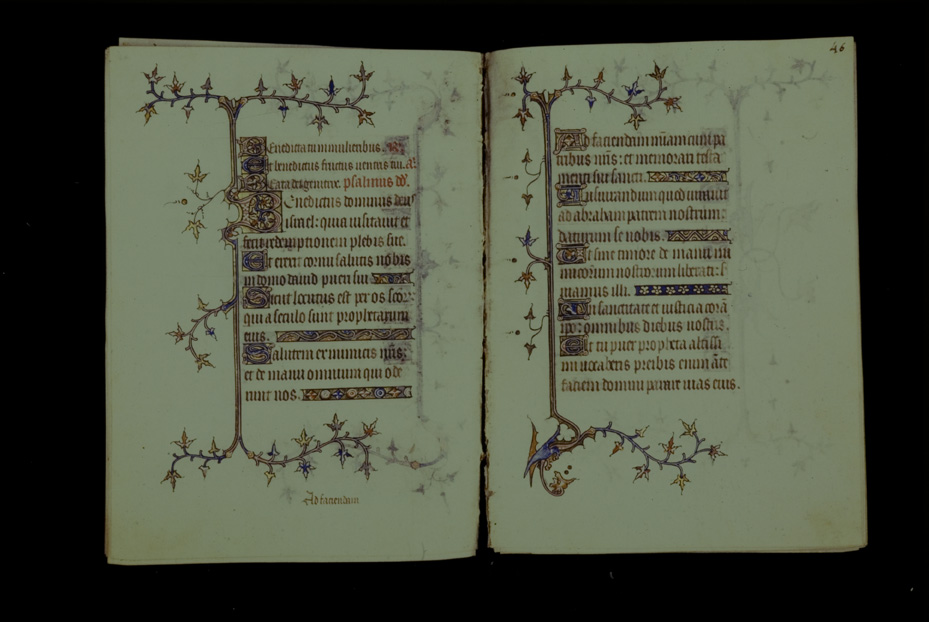 Benedicta tu in mulieribus. R.
Et benedictus fructus ventris tui. A.
Beata dei genitrix. psalmus dd.
Benedictus dominus deus
israel: quia visitavit et
fecit redemptionem plebis sue.
Et erexit cornu salutis nobis
in domo david pueri sui
Sicut locutus est per os scorum
qui a seculo sunt prophetarum
eius.
Salutem ex inimicis nris:
et de manu omnium qui ode
runt nos.
Ad faciendum
46
Ad faciendam miam cum pa
tribus nris: et memorari testa
menti sui sancti.
Iusiurandum quod iuravit
ad abraham patrem nostrum:
daturum se nobis.
Ut sine timore de manu ini
micorum nostrorum liberati: s
viamus illi.
In sanctitate et iusticia corā
ipo: omnibus diebus nostris.
Et tu puer propheta altissi
mi vocaberis: preibis enim ante
faciem domini parare vias eius.